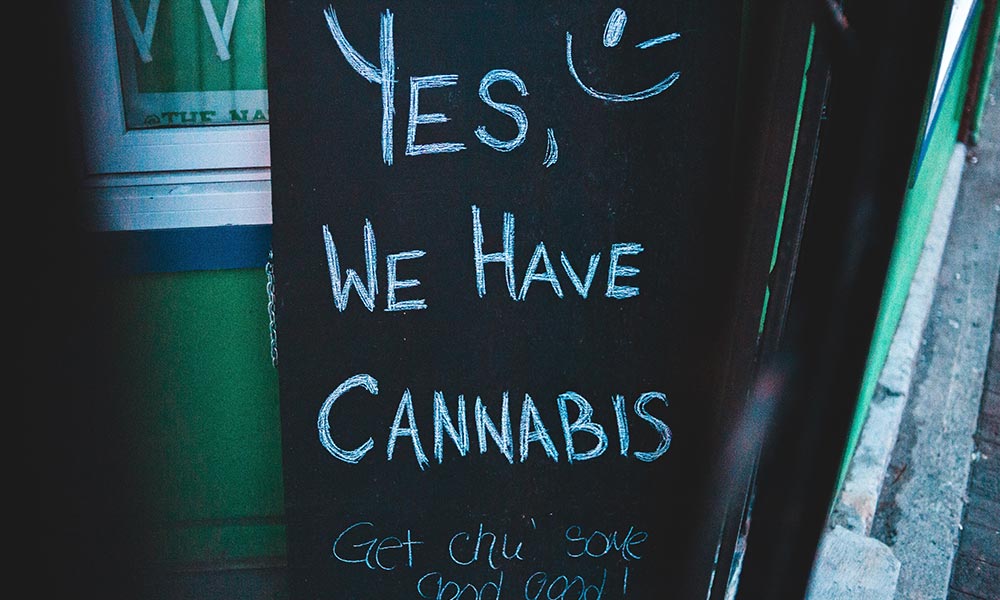 @THE NA
YES,
WE HAVE
CANNABIS
Get chu' some
good good!